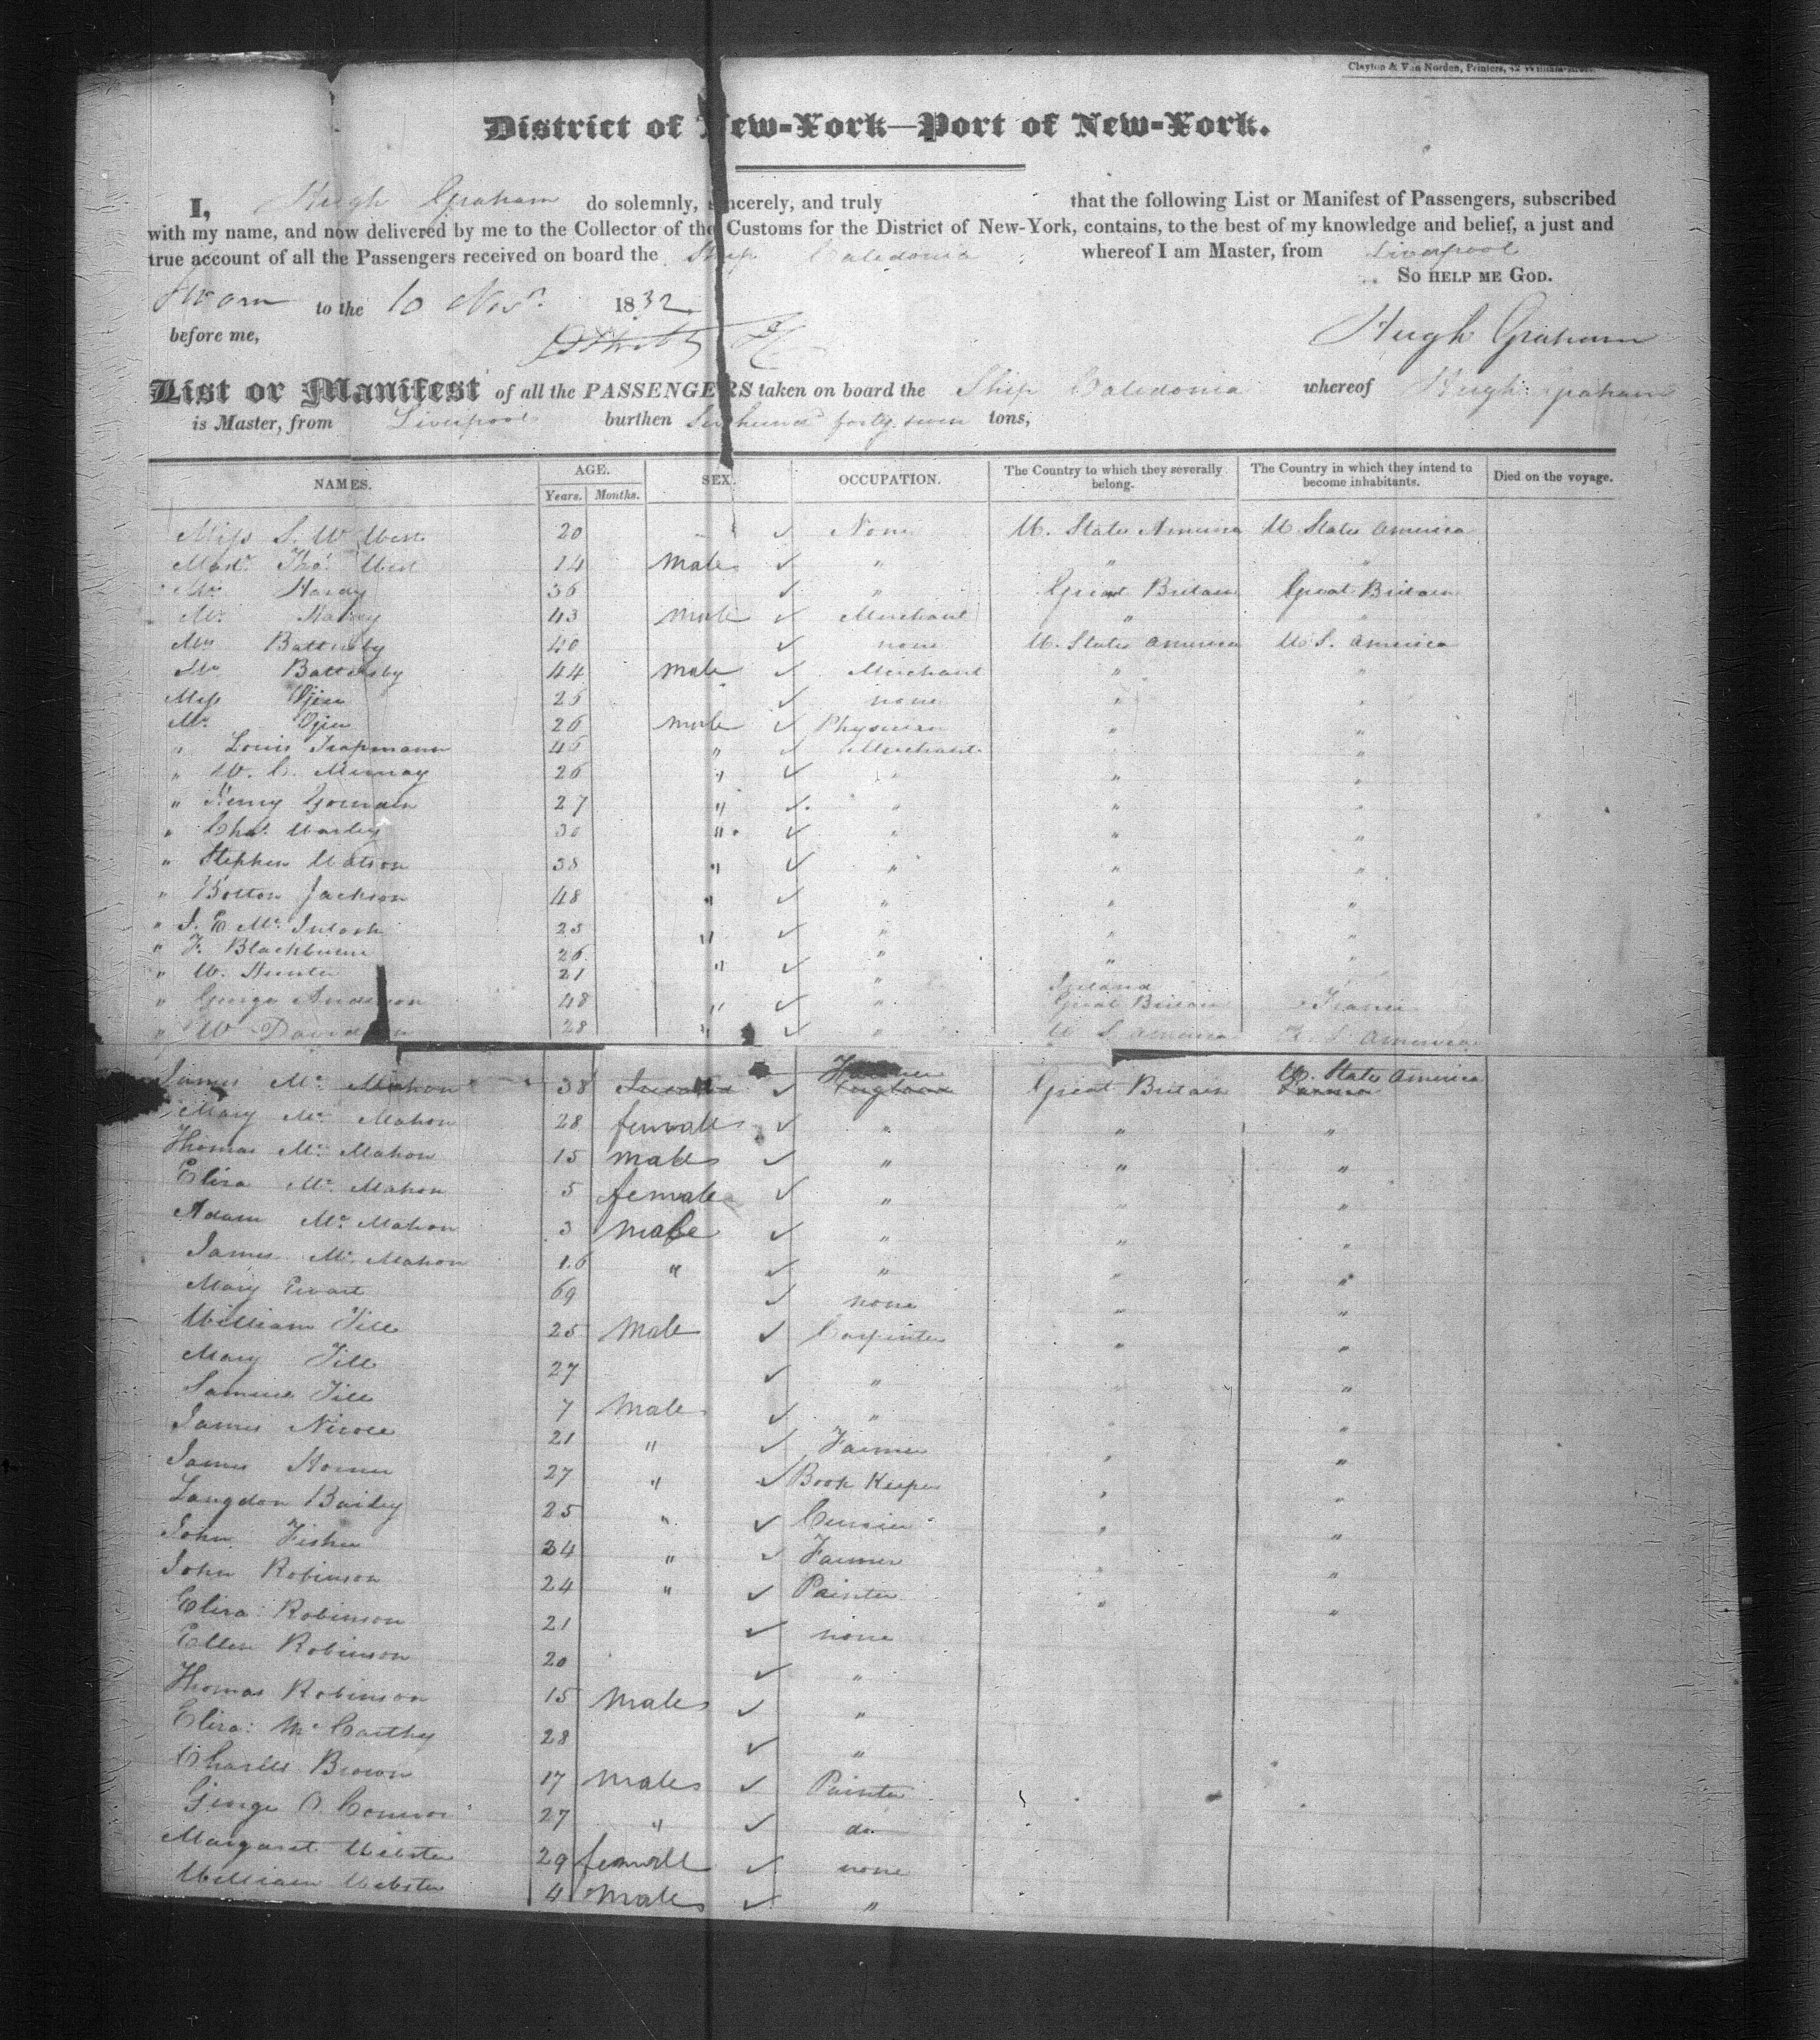 Clayton & Van Norden, Printers, 42 William-
District of New-York—Port of New-York.
I, Hugh Graham do solemnly, sincerely, and truly that the following List or Manifest of Passengers, subscribed
with my name, and now delivered by me to the Collector of the Customs for the District of New-York, contains, to the best of my knowledge and belief, a just and
true account of all the Passengers received on board the Ship Caledonia whereof I am Master, from Liverpool
So help me God.
Sworn to the 10 Novr. 1832
before me,
Hugh Graham
List or Manifest of all the PASSENGERS taken on board the Ship Caledonia whereof Hugh Graham
is Master, from Liverpool burthen Six hund forty seven tons,
NAMES. AGE. Years. Months. SEX. OCCUPATION. The Country to which they severally belong. The Country in which they intend to become inhabitants. Died on the voyage.
Miss S. W West 20 ✓ None U. States America U States America
Mastr. Thos. West 14 Male ✓ " " "
Hardy 36 ✓ " Great Britain Great Britain
Mr. 43 male ✓ Merchant " "
Mrs Battersby 40 ✓ none U. States America U S. America
Mr Battersby 44 male ✓ Merchant " "
Miss 25 ✓ none " "
Mr. 26 male ✓ Physician " "
" Louis Trapmann 45 " ✓ Merchant " "
" W. C. Murray 26 " ✓ " " "
" Henry Gourdin 27 " ✓ " " "
" Chas. Warley 30 " ✓ " " "
" Stephen Watson 38 " ✓ " " "
" Bolton Jackson 48 " ✓ " " "
" J. E Mc. Intosh 25 " ✓ " " "
" F. Blackburne 26 " ✓ " " "
" W. Hunter 21 " Ireland
" George Anderson 48 " ✓ " Great Britain France
" W Davidson 28 " ✓ " U S America U. S America
James Mc. Mahon 38 ✓ Farmer Great Britain U. States America
Mary Mc Mahon 28 female ✓ " " "
Thomas Mc Mahon 15 male ✓ " " "
Eliza Mc. Mahon 5 female ✓ " " "
Adam Mc. Mahon 3 male ✓ " " "
James Mc. Mahon 1.6 " ✓ " " "
Mary Ewart 69 ✓ none " "
William Till 25 Male ✓ Carpinter " "
Mary Till 27 ✓ " " "
Samuel Till 7 Male ✓ " " "
James Nicole 21 " ✓ Farmer " "
James Horner 27 " ✓ Book Keeper " "
Langdon Bailey 25 " ✓ Currier " "
John Fisher 24 " ✓ Farmer " "
John Robinson 24 " ✓ Painter " "
Eliza Robinson 21 ✓ none
Ellen Robinson 20 ✓ "
Thomas Robinson 15 Male ✓ "
Eliza: Mc Carthy 28 ✓ "
Charles Brown 17 Male ✓ Painter
George O. Connor 27 " ✓ do
Margaret Webster 29 female ✓ none
William Webster 4 Male ✓ "